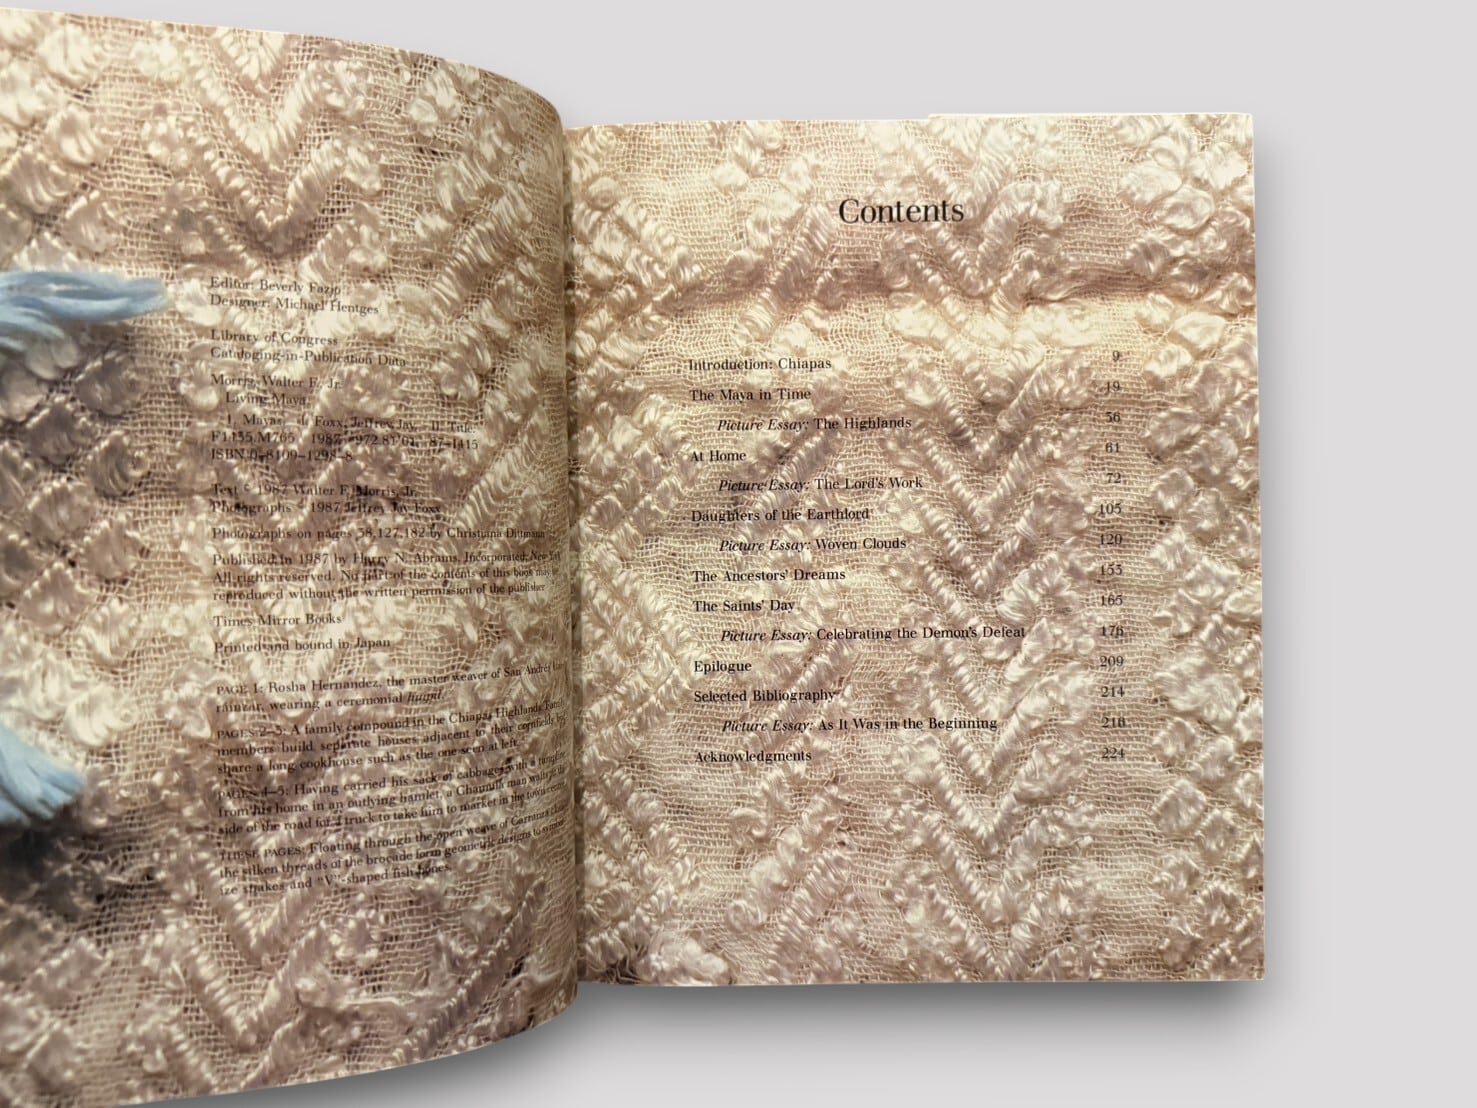 Editor: Beverly Fazio
Designer: Michael Hentges
Library of Congress
Cataloging-in-Publication Data
Morris, Walter F., Jr.
Living Maya.
1. Mayas. I. Foxx, Jeffrey Jay. II. Title.
F1435.M765 1987 972.81'01 87-1415
ISBN 0-8109-1298-8
Text © 1987 Walter F. Morris, Jr.
Photographs © 1987 Jeffrey Jay Foxx
Photographs on pages 58,127,182 by Christiana Dittmann
Published in 1987 by Harry N. Abrams, Incorporated, New York
All rights reserved. No part of the contents of this book may be
reproduced without the written permission of the publisher
Times Mirror Books
Printed and bound in Japan
PAGE 1: Rosha Hernandez, the master weaver of San Andrés
rainzar, wearing a ceremonial huipil.
PAGES 2–3: A family compound in the Chiapas Highlands. Family
members build separate houses adjacent to their cornfields but
share a long cookhouse such as the one seen at left.
PAGES 4–5: Having carried his sack of cabbages with a tumpline
from his home in an outlying hamlet, a Chamula man waits at the
side of the road for a truck to take him to market in the town center.
THESE PAGES: Floating through the open weave of Carranza
the silken threads of the brocade form geometric designs to symbol-
ize snakes and "V"-shaped fish bones.
Contents
Introduction: Chiapas 9
The Maya in Time 19
Picture Essay: The Highlands 36
At Home 61
Picture Essay: The Lord's Work 72
Daughters of the Earthlord 105
Picture Essay: Woven Clouds 120
The Ancestors' Dreams 153
The Saints' Day 165
Picture Essay: Celebrating the Demon's Defeat 176
Epilogue 209
Selected Bibliography 214
Picture Essay: As It Was in the Beginning 216
Acknowledgments 224